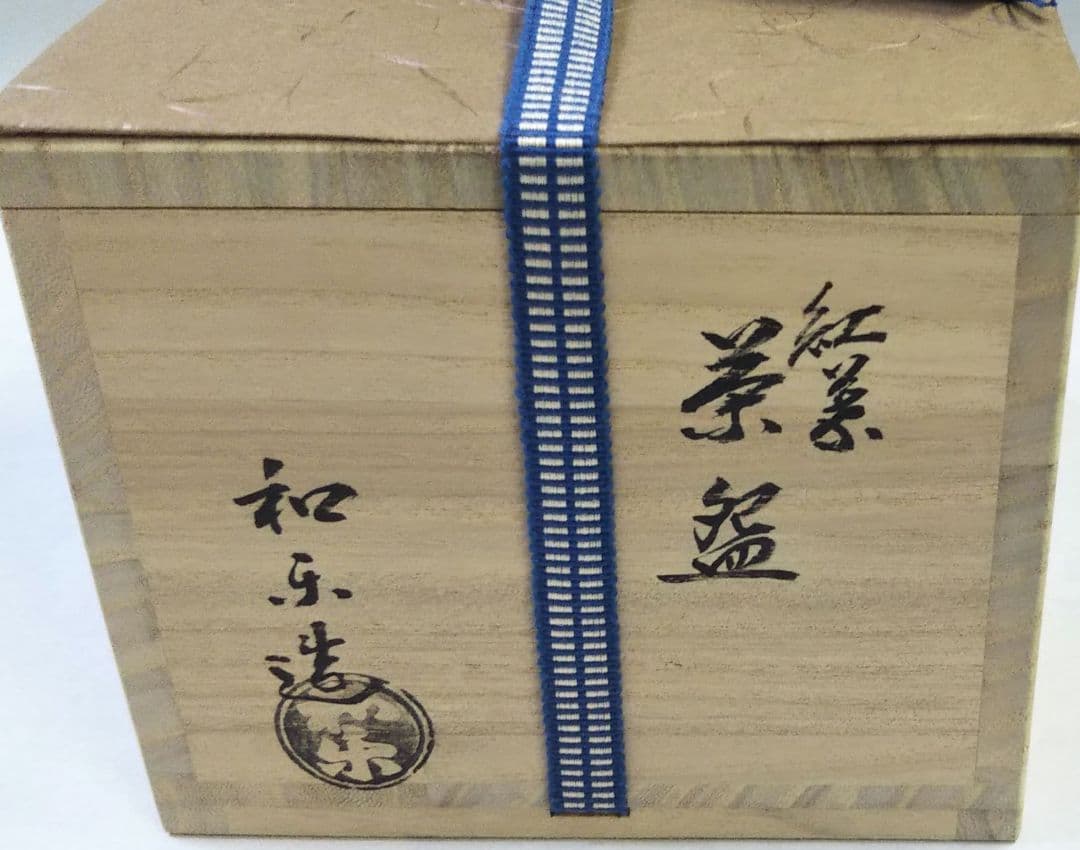 紅葉
茶盌
和楽造
楽